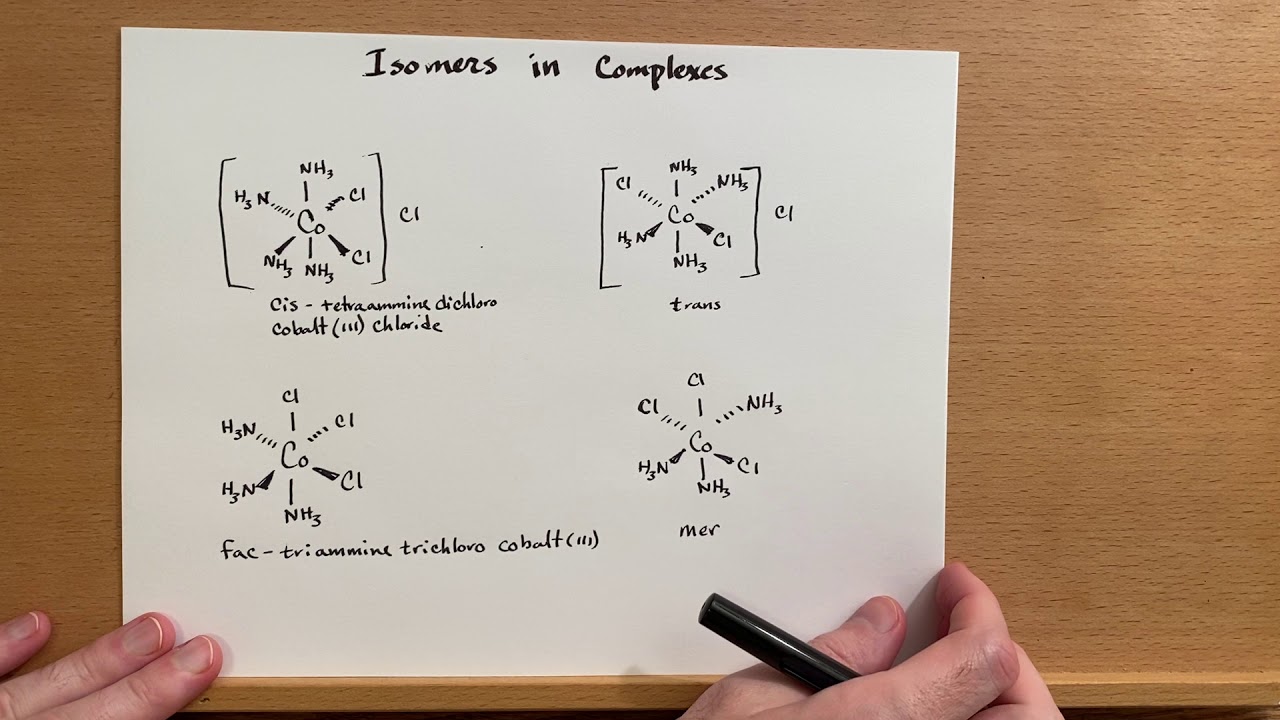 Isomers in Complexes
NH3
H3N Cl
Co
NH3 NH3 Cl
Cl
cis - tetraammine dichloro
cobalt (III) chloride
NH3
Cl NH3
Co
H3N Cl
NH3
Cl
trans
Cl
H3N Cl
Co
H3N Cl
NH3
fac - triammine trichloro cobalt (III)
Cl
Cl NH3
Co
H3N Cl
NH3
mer